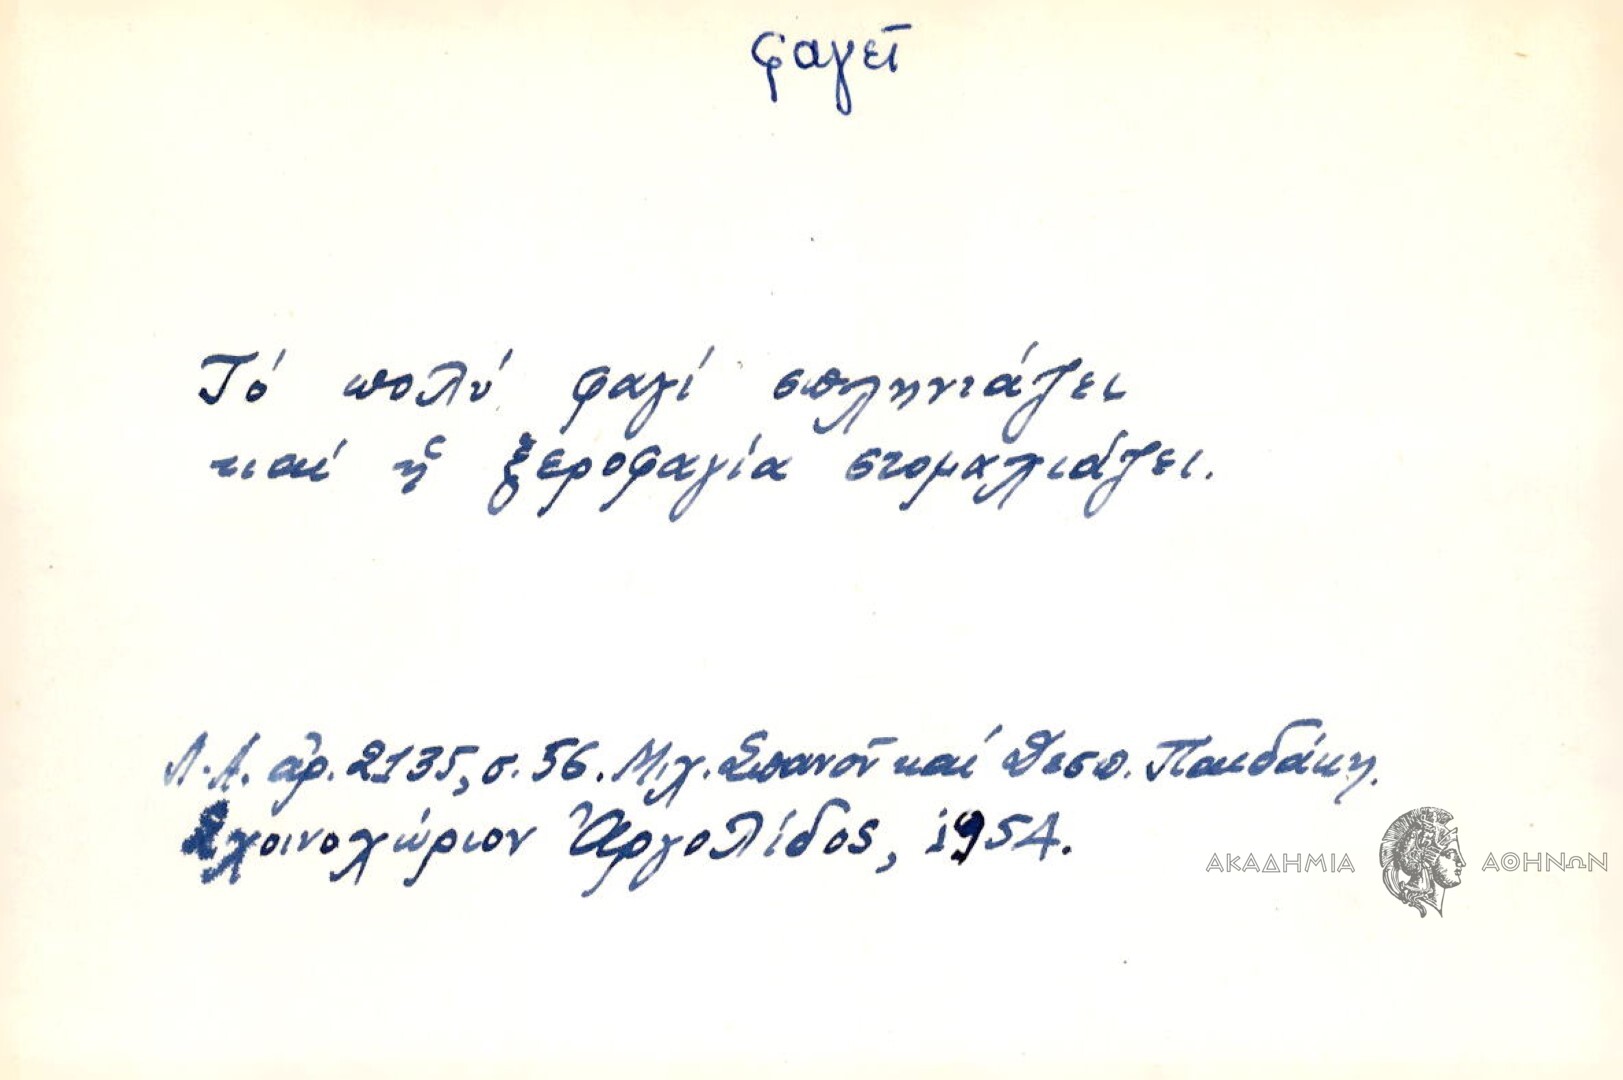 φαγεῖ
Τό πολύ φαγί σπληνιάζει
καί ἡ ξεροφαγία στομαχιάζει.
Λ.Α. ἀρ. 2135, σ. 56. Μιχ. Σπανοῦ καί Δεσπ. Παιδάκη.
Σχοινοχώριον Ἀργολίδος, 1954.
ΑΚΑΔΗΜΙΑ ΑΘΗΝΩΝ